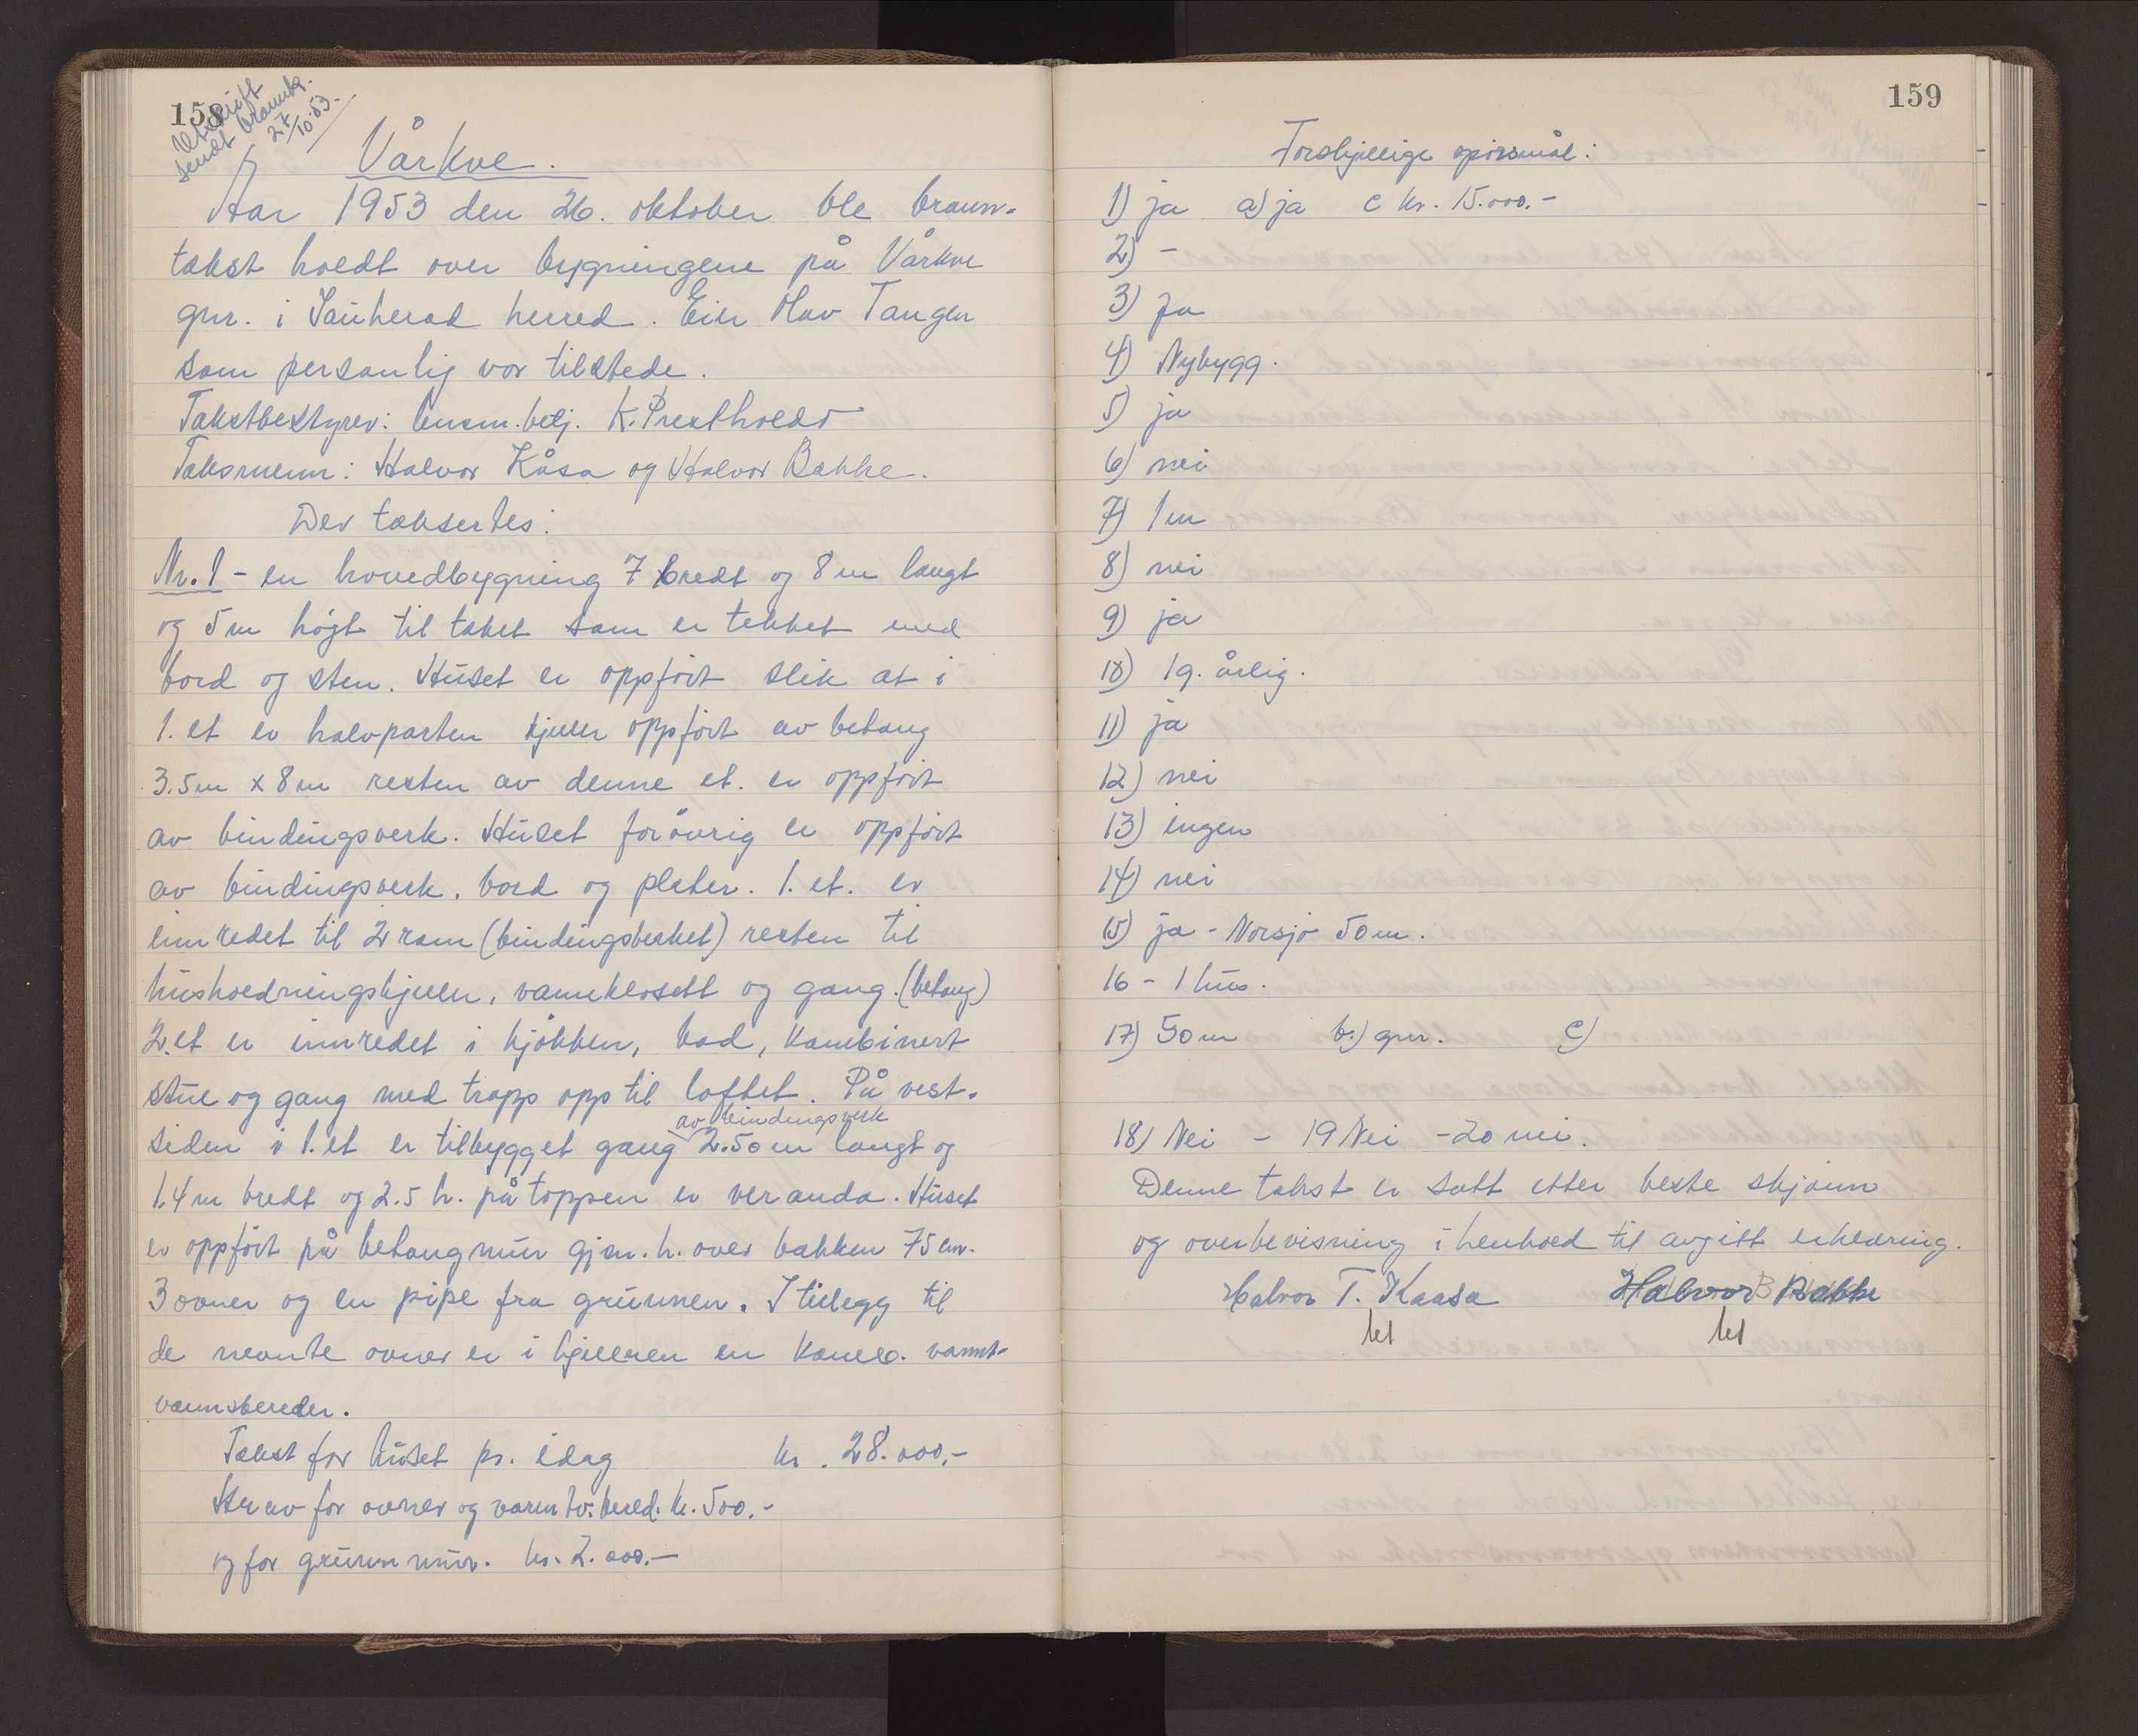 158
Utskrift
sendt Brannk.
27/10.53.
Vårkve.
Aar 1953 den 26. oktober ble brann-
takst holdt over bygningene på Vårkve
gnr. i Sauherad herred. Eier Olav Tangen
som personlig var tilstede.
Takstbestyrer: lensm.betj. K. Prestholdt
Taksmenn: Halvor Kåsa og Halvor Bakke.
Der taksertes:
Nr. 1 - en hovedbygning 7 bredt og 8 m langt
og 5 m högt til taket som er tekket med
bord og sten. Huset er oppfört slik at i
1. et er halvparten kjeller oppfört av betong
3.5m x 8m resten av denne et. er oppfört
av bindingsverk. Huset forövrig er oppfört
av bindingsverk, bord og plater. 1. et. er
innredet til 2 rom (bindingsverket) resten til
husholdningskjeller, vannklosett og gang. (betong)
2. et er innredet i kjökken, bad, kombinert
stue og gang med trapp opp til loftet. På vest-
siden i 1. et er tilbygget gang av bindingsverk 2.50 m langt og
1.4 m bredt og 2.5 h. på toppen er veranda. Huset
er oppfört på betongmur gjm. h. over bakken 75 cm.
3 ovner og en pipe fra grunnen. I tillegg til
de nevnte ovner er i kjelleren en varmt-
vannsbereder.
Takst for huset pr. idag kr. 28.000,-
Herav for ovner og varmtv.bered. kr. 500.-
og for grunnmur. kr. 2.000.-
159
Forskjellige spörsmål:
1) ja a) ja c kr. 15.000.-
2) -
3) Ja
4) Nybygg.
5) ja
6) nei
7) 1 m
8) nei
9) ja
10) 1 g. årlig.
11) ja
12) nei
13) ingen
14) nei
15) ja - Norsjö 50 m.
16 - 1 hus.
17) 50 m b.) gnr. c)
18) Nei - 19 Nei - 20 nei.
Denne takst er satt etter beste skjönn
og overbevisning i henhold til avgitt erklæring.
Halvor T. Kaasa Halvor Bakke